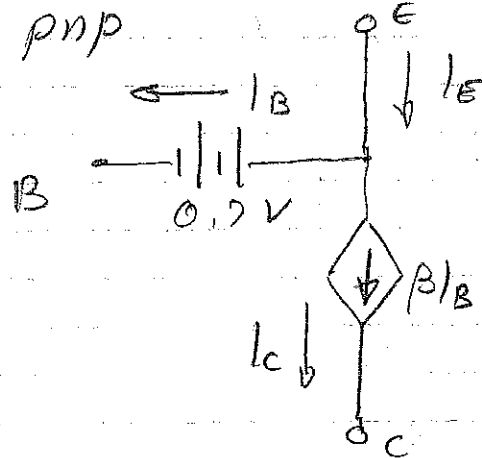 pnp
E
I_B
I_E
B
0,7 V
βI_B
I_C
C